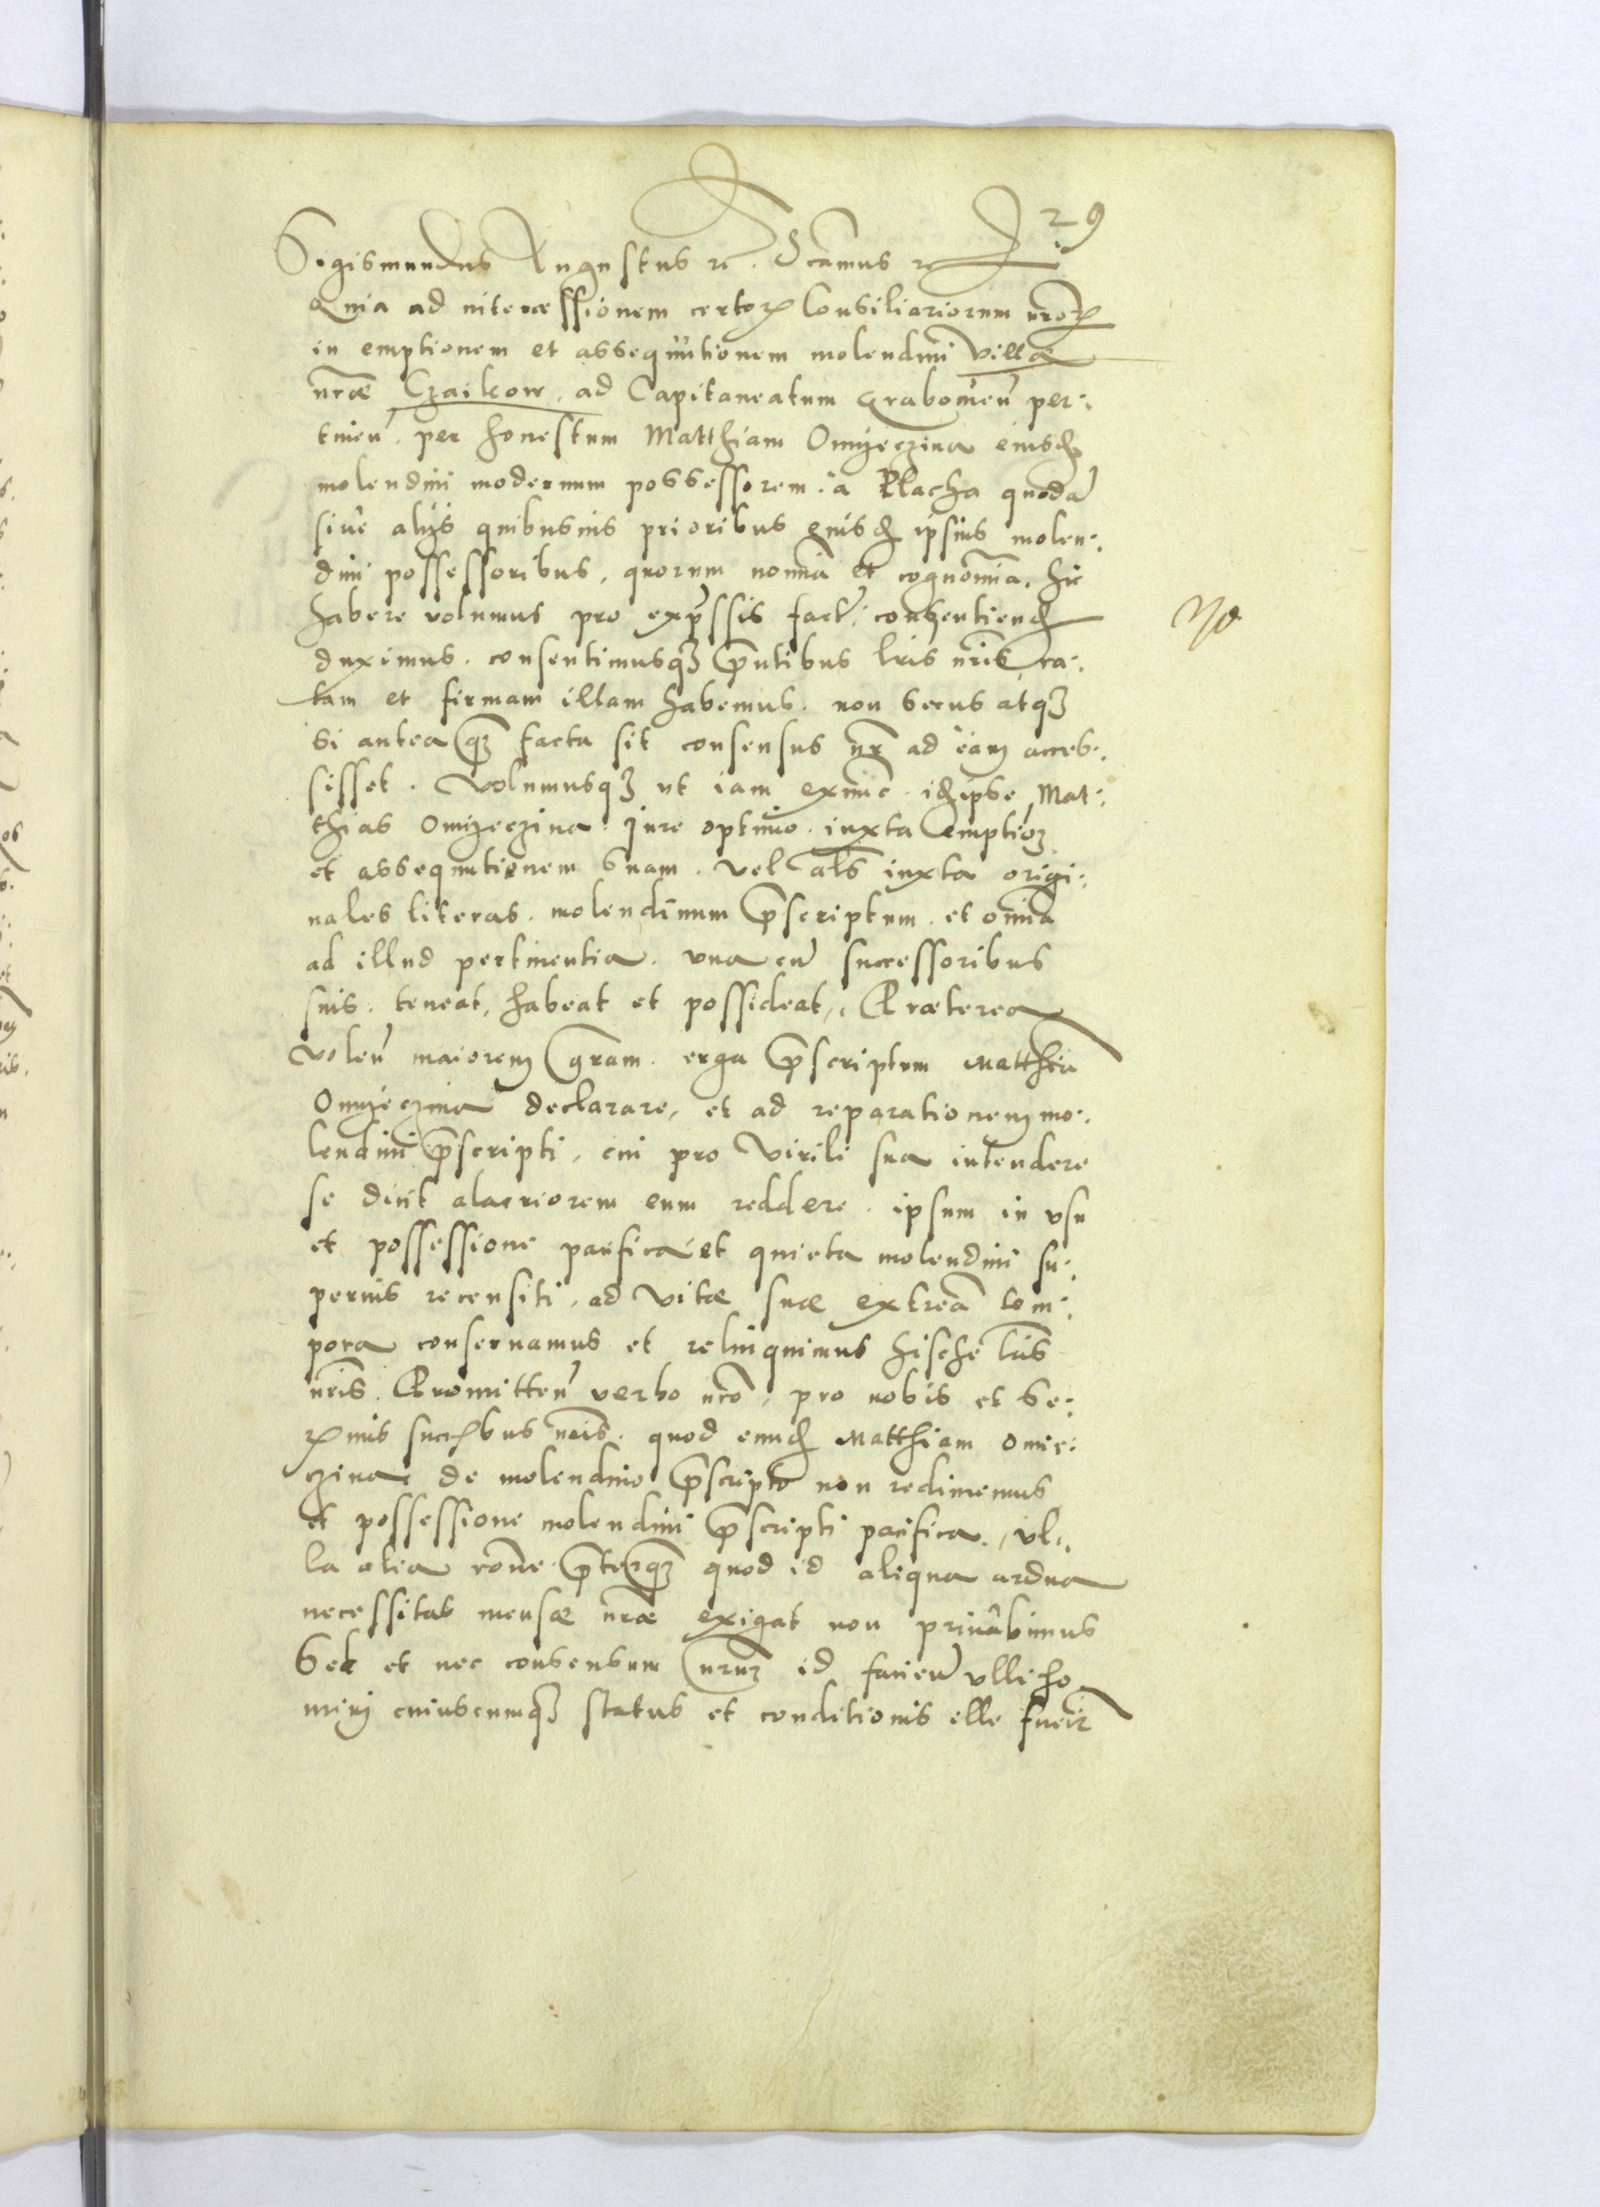 29
Sigismundus Augustus etc. Scamus etc
Quia ad intercessionem certoꝝ Consiliariorum nroꝝ
in emptionem et assequutionem molendini villæ
nræ Czaikow, ad Capitaneatum Grabowien̄ per-
tinen̄. per honestum Matthiam Omyeczina eiusd
molendini modernum possessorem. a Placha quodā
sive alijs quibusuis prioribus eiusd ipsius molen-
dini possessoribus, quorum nomīa et cognomīa, hic
habere volumus pro exp̄ssis fact. consentiend
duximus. consentimusqꝫ p̄ntibus lris nr̄is, ra-
tam et firmam illam habemus. non secus atqꝫ
si antea qꝫ facta sit consensus nr̄ ad eam acces-
sisset. Volumusqꝫ ut iam exnunc. id ipse Mat-
thias Omyeczina. Jure optimo. iuxta emptioꝫ
et assequutionem suam. vel al̄s iuxta origi-
nales literas. molendinum p̄scriptum. et omīa
ad illud pertinentia. una cū successoribus
suis. teneat, habeat et possideat. Præterea
volen̄ maiorem gram. erga p̄scriptum Matthiā
Omyeczina declarare, et ad reparationem mo-
lendini p̄scripti, cui pro virili sua intendere
se dicit alacriorem eum reddere. ipsum in vsu
et possessione pacifica et quieta molendini su-
perius recensiti, ad vitæ suæ extrēa tem-
pora conseruamus et relinquimus hische l̄ris
nr̄is. Promitten̄ verbo nr̄o, pro nobis et Se-
ꝝmis succbus nr̄is. quod eund Matthiam Omie-
czina de molendino p̄scripto non redimemus
et possessione molendini p̄scripti pacifica, vl-
la alia rōne p̄terqꝫ quod id aliqua ardua
necessitas mensæ nr̄æ exigat non priuabimus
Sed et nec consensum nrūꝫ id facien̄ vlli ho
minj cuiuscumqꝫ status et conditionis ille fuerit